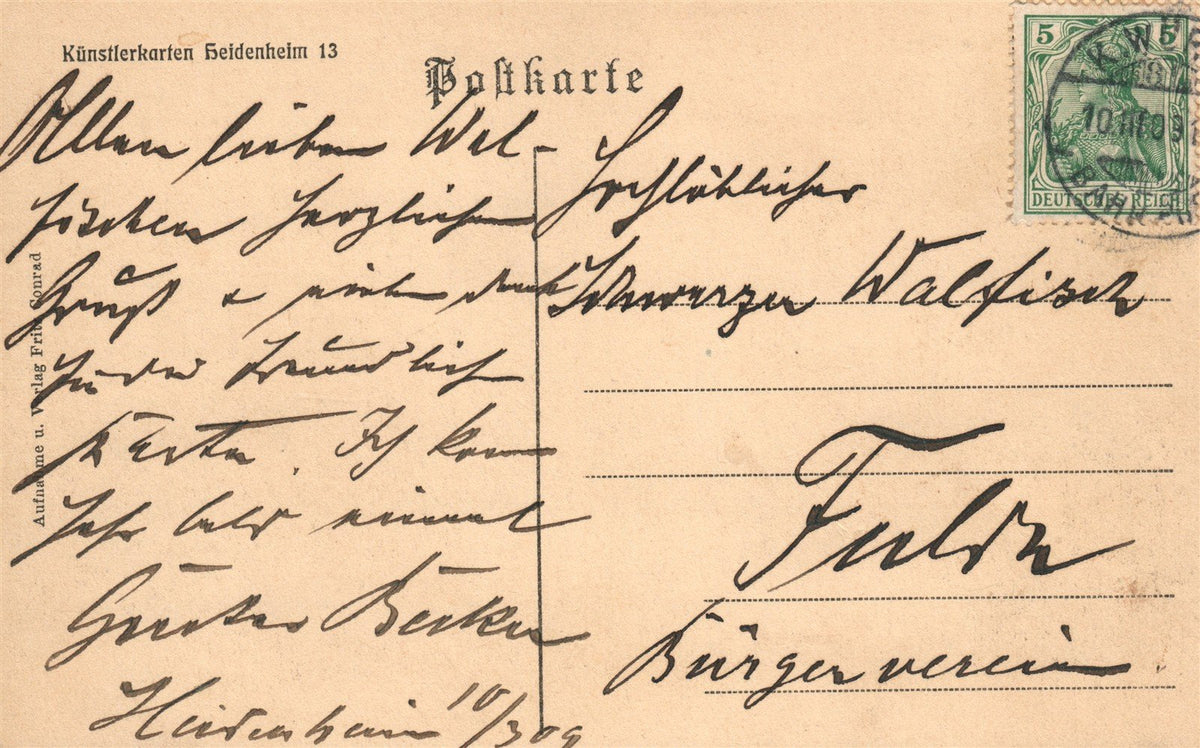 Künstlerkarten Heidenheim 13
Postkarte
5 5
K. WÜR
10.III.09
BAHNPOS
DEUTSCHES REICH
Allen lieben Wal-
fischen herzlichen
Gruß & vielen Dank
für die freundlich
Karte. Ich komme
sehr bald einmal
Becker
Heidenheim 10/3 09
Hochlöblicher
Schwarzer Walfisch
Fulda
Bürgerverein
Aufnahme u. Verlag Fritz Conrad